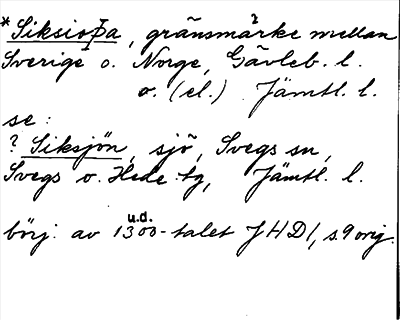 *Siksioþa, gränsmärke mellan
Sverige o. Norge, Gävleb. l.
o. (el.) Jämtl. l.
se:
? Siksjön, sjö, Svegs sn,
Svegs o. Hede tg, Jämtl. l.
u.d.
börj. av 1300-talet JHD1, s.9 orig.